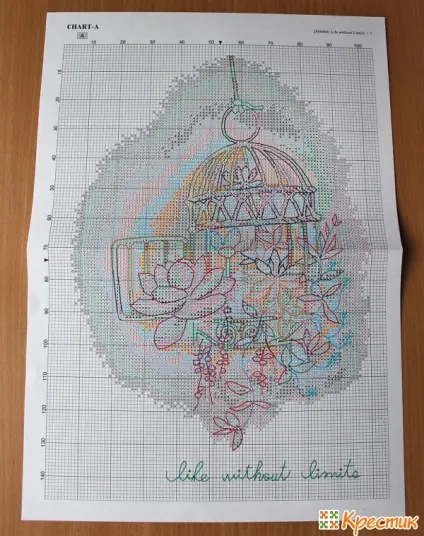 CHART-A
A
10 20 30 40 50 60 70 80 90 100
10
20
30
40
50
60
70
80
90
100
110
120
130
140
like without limits
Крестик